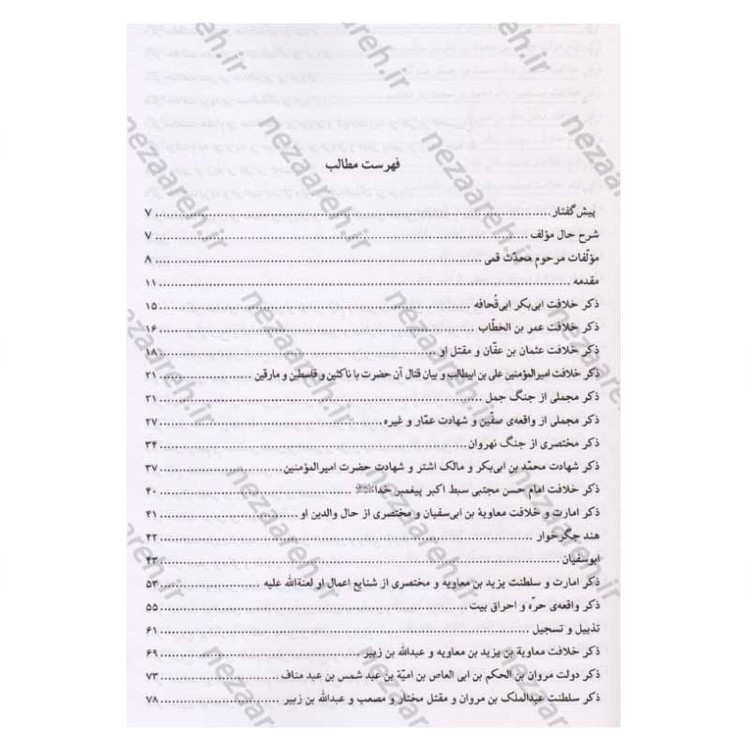 فهرست مطالب
پیش‌گفتار ۷
شرح حال مؤلف ۷
مؤلّفات مرحوم محدّث قمی ۸
مقدمه ۱۱
ذکر خلافت ابی‌بکر ابی‌قُحافه ۱۵
ذکر خلافت عمر بن الخطّاب ۱۶
ذکر خلافت عثمان بن عفّان و مقتل او ۱۸
ذکر خلافت امیرالمؤمنین علی بن ابیطالب و بیان قتال آن حضرت با ناکثین و قاسطین و مارقین ۲۱
ذکر مجملی از جنگ جمل ۲۱
ذکر مجملی از واقعه‌ی صفّین و شهادت عمّار و غیره ۲۷
ذکر مختصری از جنگ نهروان ۳۴
ذکر شهادت محمّد بن ابی‌بکر و مالک اشتر و شهادت حضرت امیرالمؤمنین ۳۷
ذکر خلافت امام حسن مجتبی سبط اکبر پیغمبر خدا ۴۰
ذکر امارت و خلافت معاویة بن ابی‌سفیان و مختصری از حال والدین او ۴۱
هند جگرخوار ۴۲
ابوسفیان ۴۳
ذکر امارت و سلطنت یزید بن معاویه و مختصری از شنایع اعمال او لعنةالله علیه ۵۳
ذکر واقعه‌ی حرّه و احراق بیت ۵۵
تذییل و تسجیل ۶۱
ذکر خلافت معاویة بن یزید بن معاویه و عبدالله بن زبیر ۶۹
ذکر دولت مروان بن الحکم بن ابی العاص بن امیّة بن عبد شمس بن عبد مناف ۷۳
ذکر سلطنت عبدالملک بن مروان و مقتل مختار و مصعب و عبدالله بن زبیر ۷۸
nezaareh.ir